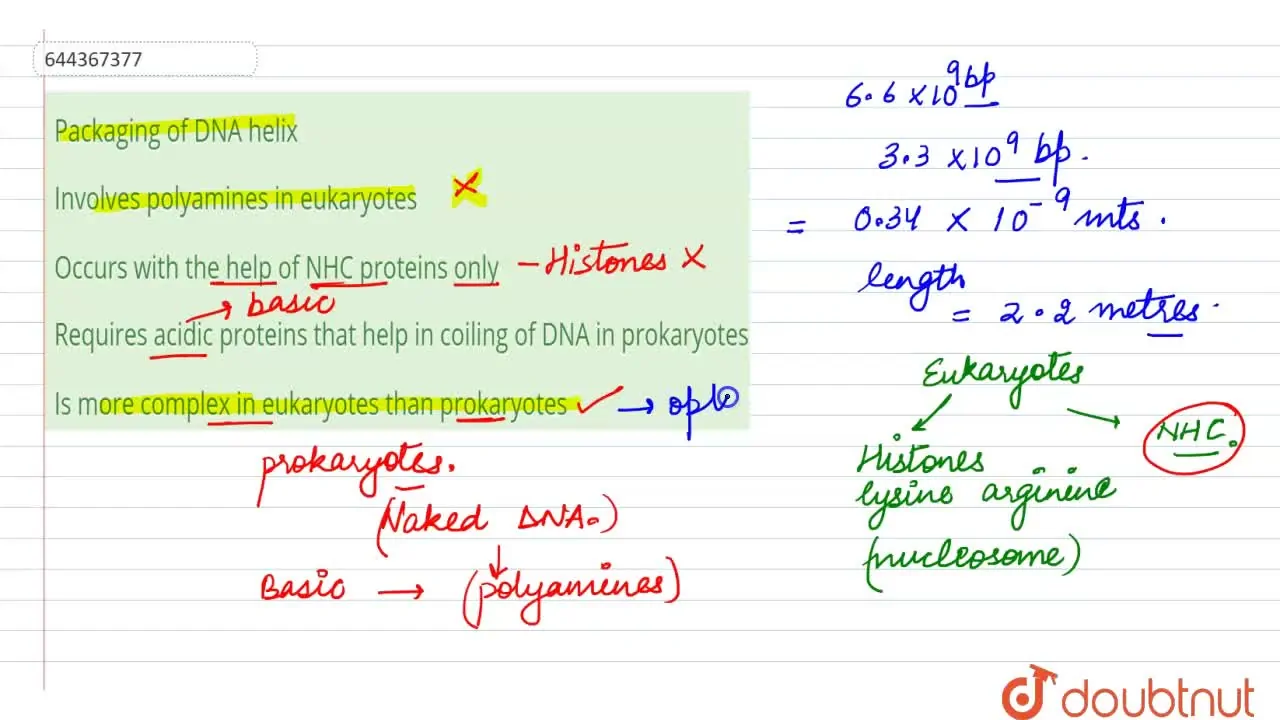 644367377
Packaging of DNA helix
Involves polyamines in eukaryotes ×
Occurs with the help of NHC proteins only – Histones ×
→ basic
Requires acidic proteins that help in coiling of DNA in prokaryotes
Is more complex in eukaryotes than prokaryotes ✓ →
prokaryotes.
(Naked DNA.)
↓
Basic → (polyamines)
6.6 × 10⁹ bp
3.3 × 10⁹ bp.
= 0.34 × 10⁻⁹ mts.
length
= 2.2 metres.
Eukaryotes
NHC.
Histones
lysine arginine
(nucleosome)
doubtnut